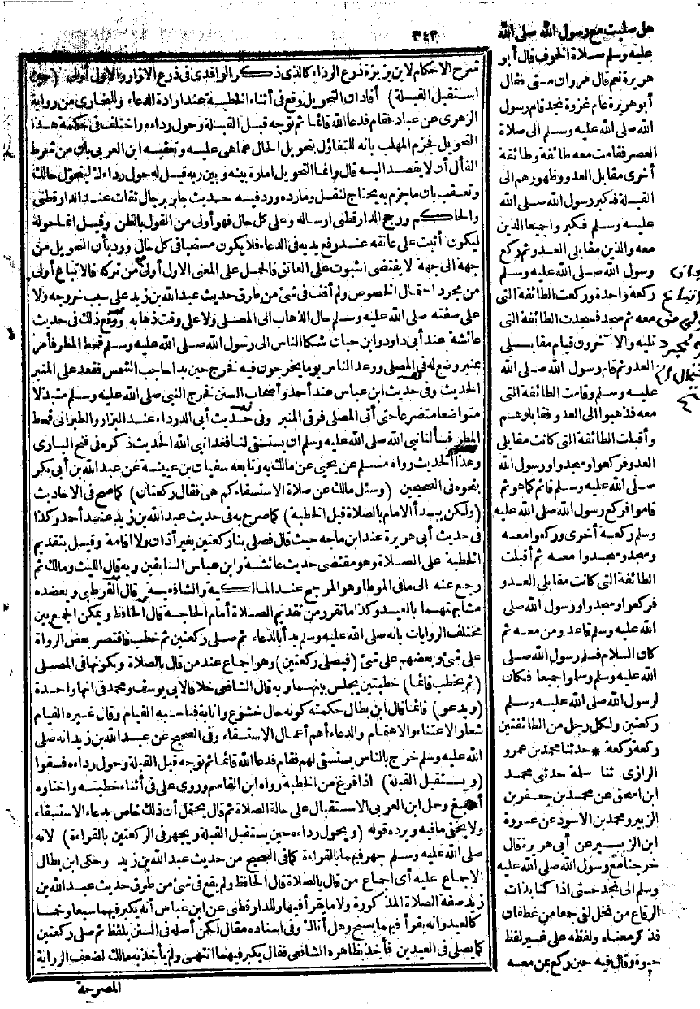 ٣٤٣
شرح الاحكام لابن بزيزة ذرع الرداء كالذى ذكره الواقدى فى ذرع الازار والاول أولى (حين
استقبل القبلة) أفاد ان التحويل وقع فى أثناء الخطبة عند ارادة الدعاء وللبخارى من رواية
الزهرى عن عباد فقام فدعا الله قائما ثم توجه قبل القبلة وحول رداءه واختلف فى حكمة هذا
التحويل فجزم المهلب بانه للتفاؤل بتحويل الحال عما هى عليه وتعقبه ابن العربى بان من شرط
الفأل أن لا يقصد اليه قال وانما التحويل امارة بينه وبين ربه قيل له حول رداءك ليتحول حالك
وتعقب بان ما جزم به يحتاج لنقل وما رده ورد فيه حديث جابر برجال ثقات عند الدارقطنى
والحاكم ورجح الدارقطنى ارساله وعلى كل حال فهو أولى من القول بالظن وقيل انما حوله
ليكون أثبت على عاتقه عند رفع يديه فى الدعاء فلا يكون مستقبا فى كل حال ورد بأن التحويل من
جهة الى جهة لا يقتضى الثبوت على العاتق فالحمل على المعنى الاول أولى من تركه فالاتباع أولى
من مجرد احتمال الخصوص ولم أقف فى شئ من طرق حديث عبد الله بن زيد على سبب خروجه ولا
على صفته صلى الله عليه وسلم حال الذهاب الى المصلى ولا على وقت ذهابه ووقع ذلك فى حديث
عائشة عند أبى داود وابن حبان شكا الناس الى رسول الله صلى الله عليه وسلم قحط المطر فأمر
بمنبر وضع له فى المصلى ووعد الناس يوما يخرجون فيه فخرج حين بدا حاجب الشمس فقعد على المنبر
الحديث وفى حديث ابن عباس عند أحمد وأصحاب السنن خرج النبى صلى الله عليه وسلم متبذلا
متواضعا متضرعا حتى أتى المصلى فرقى المنبر وفى حديث أبى الدرداء عند البزار والطبرانى قحط
المطر فسألنا نبى الله صلى الله عليه وسلم ان يستسقى لنا فغدا نبى الله الحديث ذكره فى فتح البارى
وهذا الحديث رواه مسلم عن يحيى عن مالك به وتابعه سفيان بن عيينة عن عبد الله بن أبى بكر
بنحوه فى الصحيحين (وسئل مالك عن صلاة الاستسقاء كم هى فقال ركعتان) كما صح فى الاحاديث
(ولكن يبدأ الامام بالصلاة قبل الخطبة) كما صرح به فى حديث عبد الله بن زيد عند أحمد وكذا
فى حديث أبى هريرة عند ابن ماجه حيث قال فصلى بنا ركعتين بغير أذان ولا اقامة وقيل بتقديم
الخطبة على الصلاة وهو مقتضى حديث عائشة وابن عباس السابقين وبه قال الليث ومالك ثم
رجع عنه الى ما فى الموطا وهو المرجح عند المالكية والشافعية قال القرطبى ويعضده
مشابهتهما بالعيد وكذا ما تقرر من تقديم الصلاة أمام الحاجة قال الحافظ ويمكن الجمع بين
مختلف الروايات بانه صلى الله عليه وسلم بدأ بالدعاء ثم صلى ركعتين ثم خطب فاقتصر بعض الرواة
على شئ وبعضهم على شئ (فيصلى ركعتين) وهو اجماع عند من قال بالصلاة وبكونها فى المصلى
(ثم يخطب قائما) خطبتين يجلس بينهما وبه قال الشافعى خلافا لابى يوسف ومحمد فى انها واحدة
(ويدعو) قائما قال ابن بطال حكمته كونه حال خشوع وانابة فناسبه القيام وقال غيره القيام
شعار الاعتناء والاهتمام والدعاء أهم أعمال الاستسقاء وفى الصحيح عن عبد الله بن زيد انه صلى
الله عليه وسلم خرج بالناس يستسقى لهم فقام فدعا الله قائما ثم توجه قبل القبلة وحول رداءه فسقوا
(ويستقبل القبلة) اذا فرغ من الخطبة رواه ابن القاسم وروى على فى أثناء خطبته واختاره
أصبغ وحمل ابن العربى الاستقبال على حالة الصلاة ثم قال يحتمل أن ذلك خاص بدعاء الاستسقاء
ولا يخفى ما فيه ويرده قوله (ويحول رداءه حين يستقبل القبلة ويجهر فى الركعتين بالقراءة) لانه
صلى الله عليه وسلم جهر فيهما بالقراءة كما فى الصحيح من حديث عبد الله بن زيد وحكى ابن بطال
الاجماع عليه أى اجماع من قال بالصلاة قال الحافظ ولم يقع فى شئ من طرق حديث عبد الله بن
زيد صفة الصلاة المذكورة ولا ما يقرأ فيها وللدارقطنى عن ابن عباس أنه يكبر فيهما سبعا وخمسا
كالعيد وانه يقرأ فيهما بسبح وهل أتاك وفى اسناده مقال لكن أصله فى السنن بلفظ ثم صلى ركعتين
كما يصلى فى العيدين فأخذ بظاهره الشافعى فقال يكبر فيهما انتهى ولم يأخذ به مالك لضعف الرواية
المصرحة
هل صليت مع رسول الله صلى الله
عليه وسلم صلاة الخوف قال أبو
هريرة نعم قال مروان متى فقال
أبو هريرة عام غزوة نجد قام رسول
الله صلى الله عليه وسلم الى صلاة
العصر فقامت معه طائفة وطائفة
أخرى مقابل العدو وظهورهم الى
القبلة فكبر رسول الله صلى الله
عليه وسلم فكبروا جميعا الذين
معه والذين مقابلى العدو ثم ركع
رسول الله صلى الله عليه وسلم
ركعة واحدة وركعت الطائفة التى
معه ثم سجد فسجدت الطائفة التى
تليه والآخرون قيام مقابلى
العدو ثم قام رسول الله صلى الله
عليه وسلم وقامت الطائفة التى
معه فذهبوا الى العدو فقابلوهم
وأقبلت الطائفة التى كانت مقابلى
العدو فركعوا وسجدوا ورسول الله
صلى الله عليه وسلم قائم كما هو ثم
قاموا فركع رسول الله صلى الله عليه
وسلم ركعة أخرى وركعوا معه
وسجد وسجدوا معه ثم أقبلت
الطائفة التى كانت مقابلى العدو
فركعوا وسجدوا ورسول الله صلى
الله عليه وسلم قاعد ومن معه ثم
كان السلام فسلم رسول الله صلى
الله عليه وسلم وسلموا جميعا فكان
لرسول الله صلى الله عليه وسلم
ركعتين ولكل رجل من الطائفتين
ركعة ركعة * حدثنا محمد بن عمرو
الرازى ثنا سلمة حدثنى محمد
ابن اسحق عن محمد بن جعفر بن
الزبير ومحمد بن الاسود عن عروة
ابن الزبير عن أبى هريرة قال
خرجنا مع رسول الله صلى الله عليه
وسلم الى نجد حتى اذا كنا بذات
الرقاع من نخل لقى جمعا من غطفان
فذكر معناه ولفظه على غير لفظ
حيوة وقال فيه حين ركع بمن معه